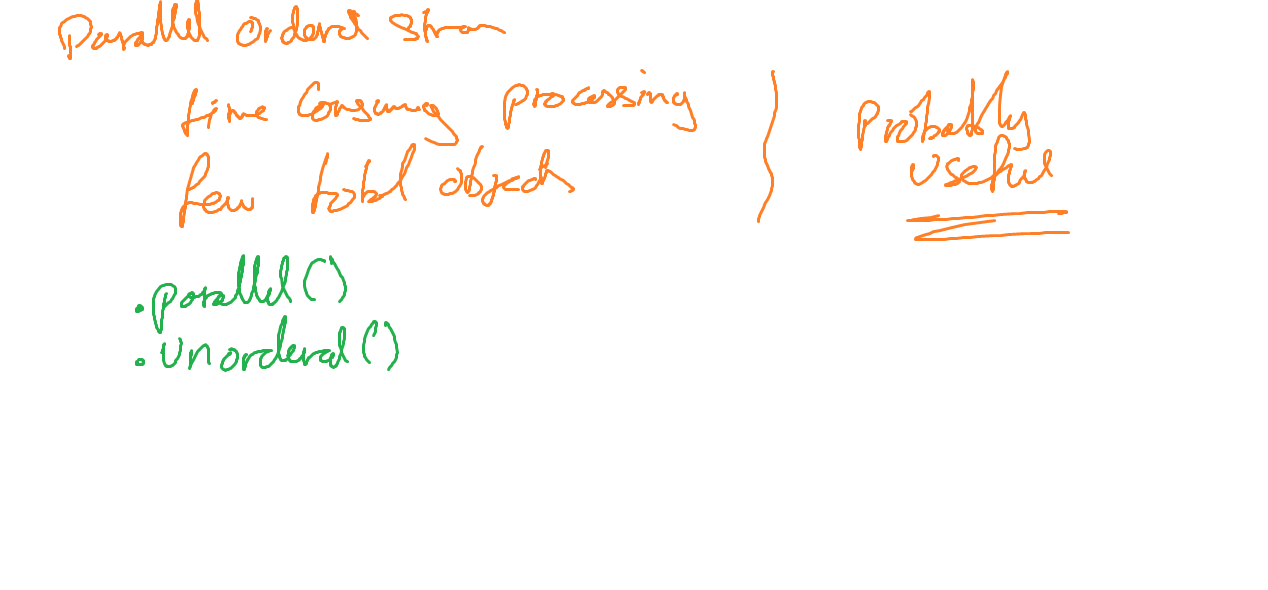 Parallel Ordered Stream
time Consuming processing
few total objects
Probably
useful
.parallel()
.unordered()